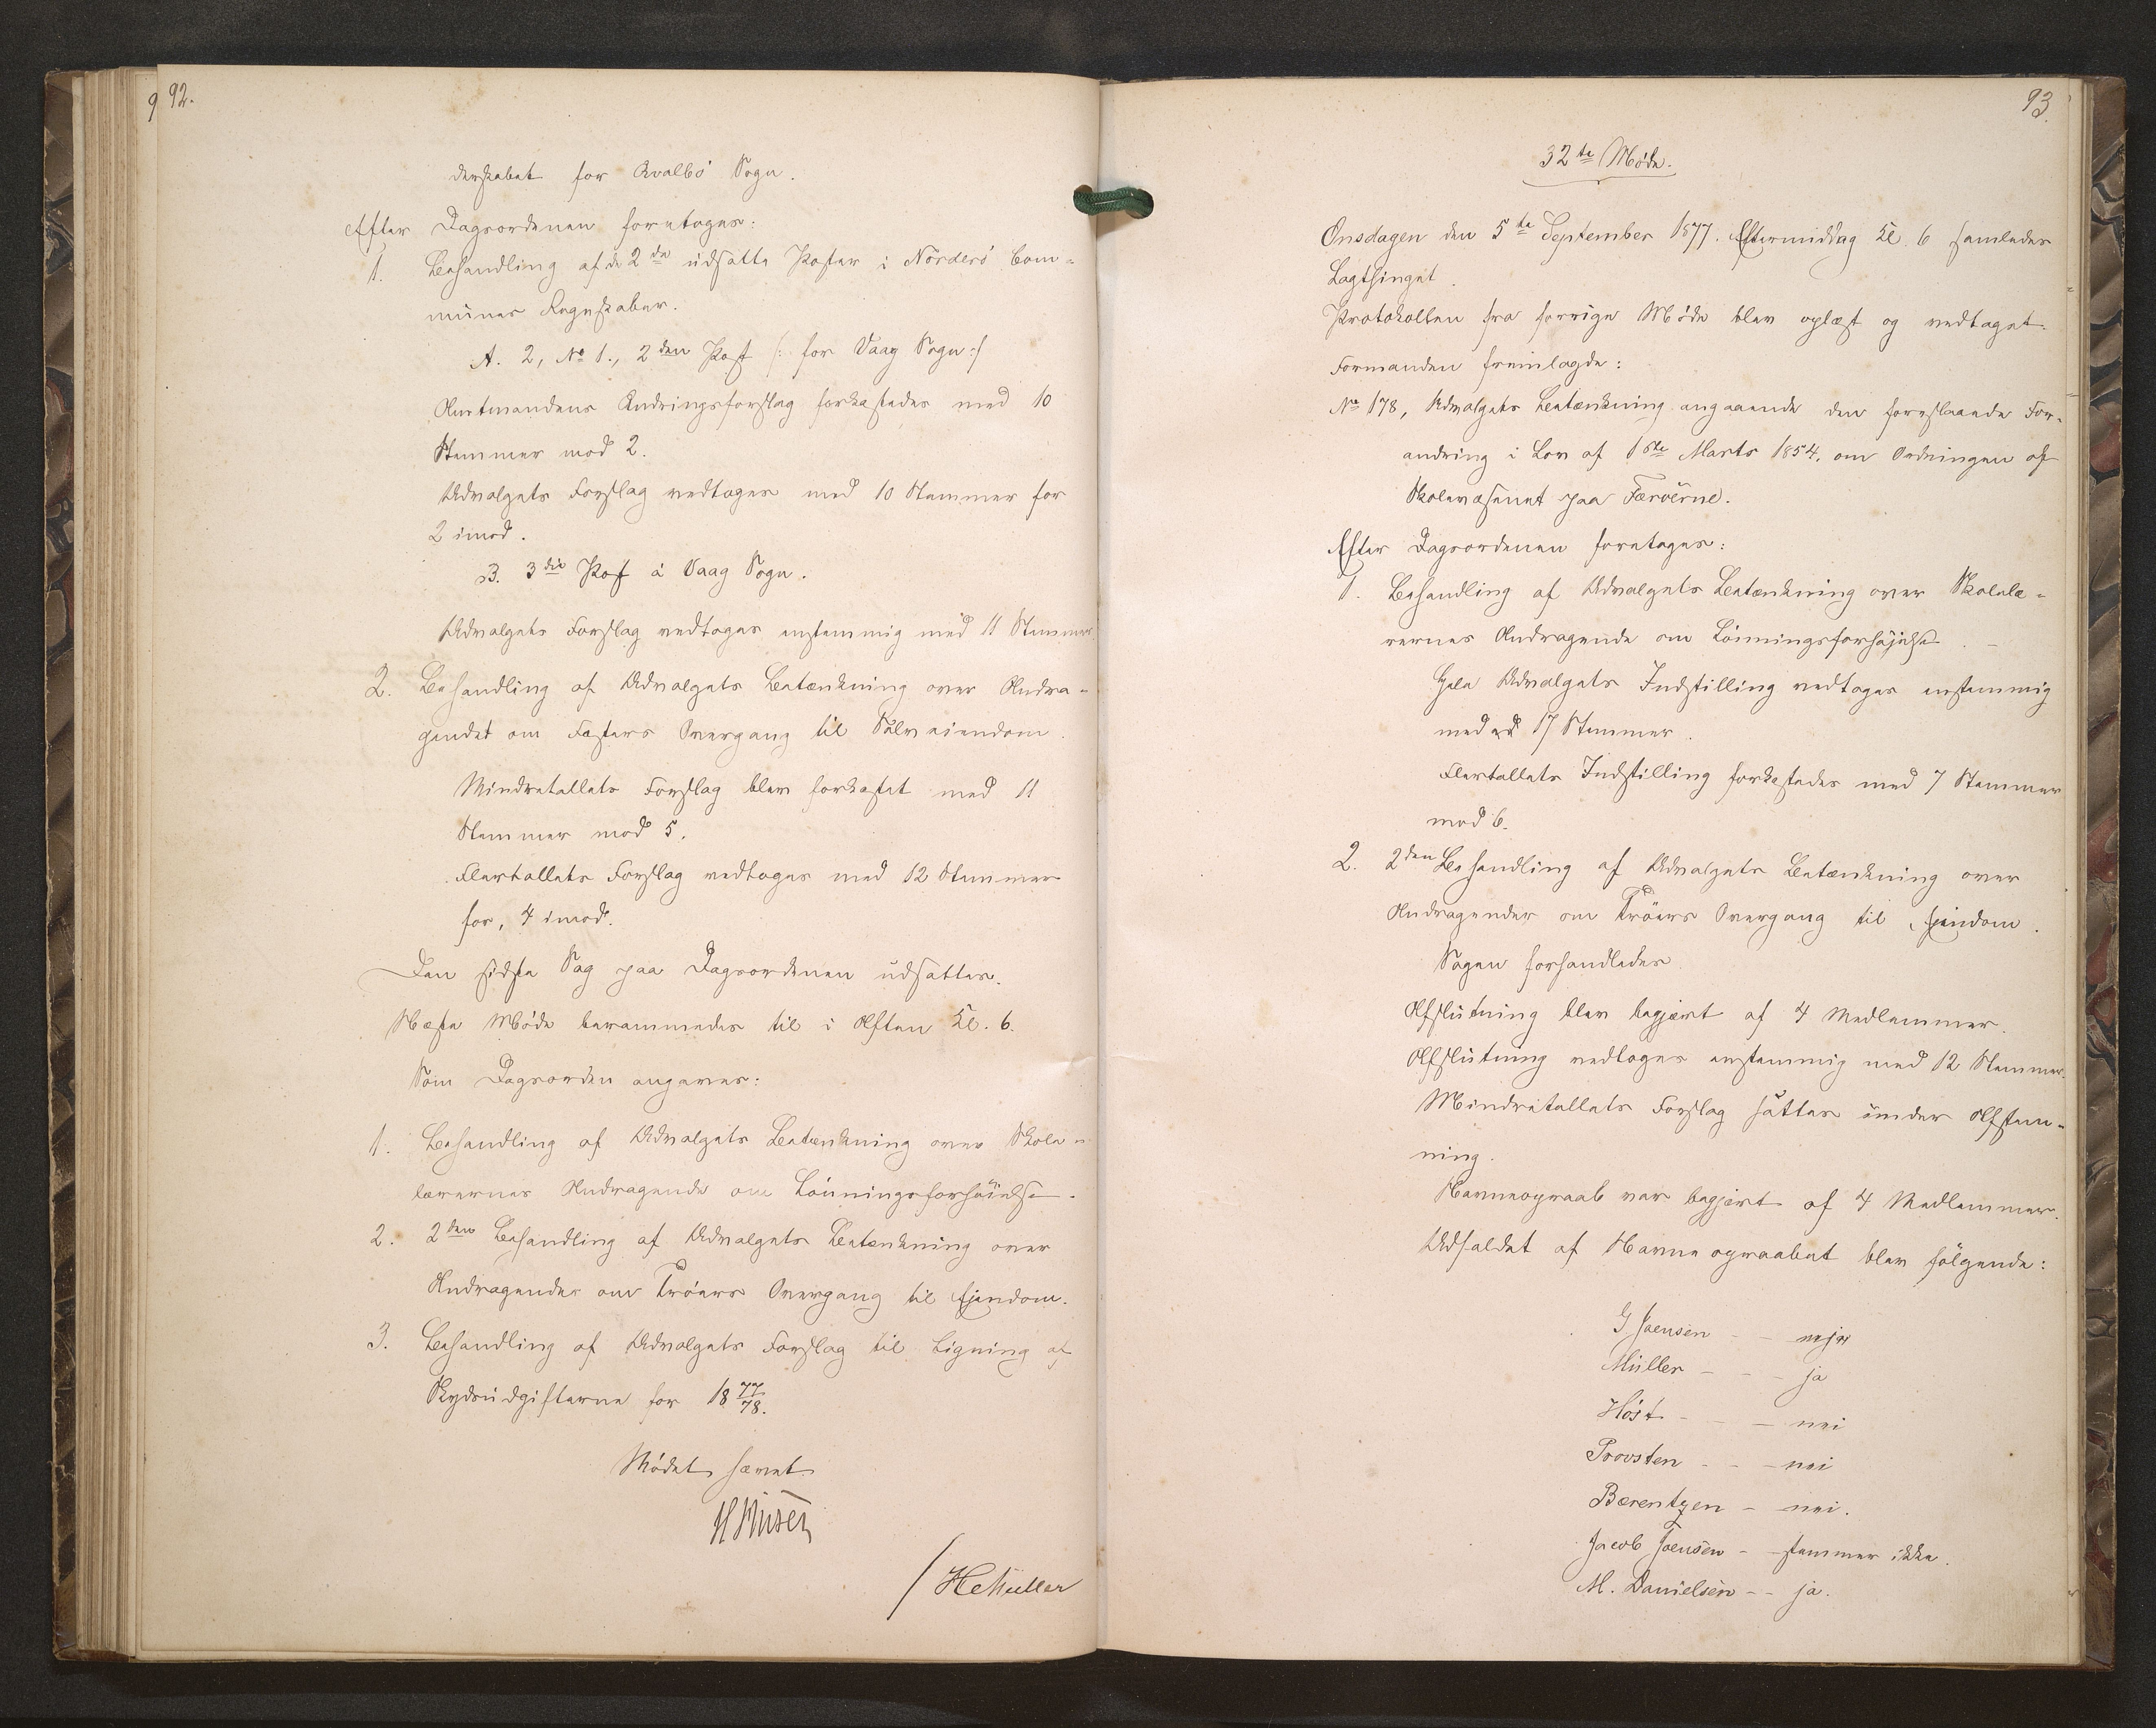 9 92.
derskabet for Qvalbö Sogn.
Efter Dagsordenen foretoges:
1. Behandling af de 2de udsatte Poster i Norderö Com=
muners Regnskaber.
A. 2, No 1., 2den Post /: for Vaag Sogn :/
Amtmandens Ændringsforslag forkastedes med 10
Stemmer mod 2.
Udvalgets Forslag vedtoges med 10 Stemmer for
2 imod.
B. 3die Post à Vaag Sogn.
Udvalgets Forslag vedtoges enstemmig med 11 Stemmer.
2. Behandling af Udvalgets Betænkning over Andra=
gendet om Fæsters Overgang til Selveiendom.
Mindretallets Forslag blev forkastet med 11
Stemmer mod 5.
Flertallets Forslag vedtoges med 12 Stemmer
for, 4 imod.
Den sidste Sag paa Dagsordenen udsattes.
Næste Möde berammedes til i Aften Kl. 6.
Som Dagsorden angaves:
1. Behandling af Udvalgets Betænkning over Skole=
lærernes Andragende om Lönningsforhöielse.
2. 2den Behandling af Udvalgets Betænkning over
Andragender om Tröers Overgang til Ejendom.
3. Behandling af Udvalgets Forslag til Ligning af
Skydsudgifterne for 18 77/78.
Mödet hævet
/ HCMüller
93.
32te Möde.
Onsdagen den 5te September 1877. Eftermiddag Kl. 6 samledes
Lagthinget.
Protokollen fra forrige Möde blev oplæst og vedtaget.
Formanden fremlagde:
No 178, Udvalgets Betænkning angaaende den foreslaaede For=
andring i Lov af 1ste Marts 1854. om Ordningen af
Skolevæsenet paa Færöerne.
Efter Dagsordenen foretoges:
1. Behandling af Udvalgets Betænkning over Skolelæ=
rernes Andragende om Lönningsforhöjelse.
Hele Udvalgets Indstilling vedtoges enstemmig
med 17 Stemmer.
Flertallets Indstilling forkastedes med 7 Stemmer
mod 6.
2. 2den Behandling af Udvalgets Betænkning over
Andragender om Tröers Overgang til Ejendom.
Sagen forhandledes
Afslutning blev begjært af 4 Medlemmer.
Afslutning vedtoges enstemmig med 12 Stemmer.
Mindretallets Forslag sattes under Afstem=
ning.
Navneopraab var begjært af 4 Medlemmer.
Udfaldet af Navneopraabet blev fölgende:
J Joensen - - nej
Müller - - - ja
Höst - - - nei
Provsten - - - nei
Bærentzen - nei.
Jacob Joensen - - stemmer ikke.
M. Danielsen - - ja.